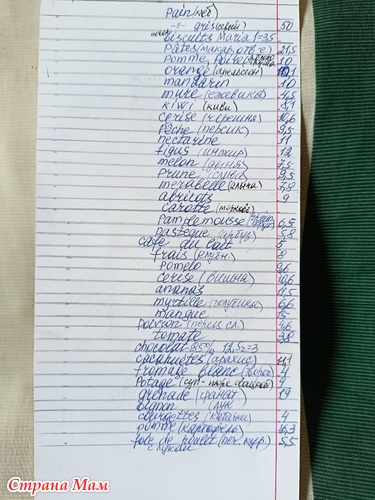 pain (хлеб)
-"- gris (серый) 50
biscuits Maria 1=3,5
Pâtes (макар. отв-е) 21,5
Pomme Poire 10
orange (апельсин) 10,1
mandarin 10
mure (ежевика) 4,5
kiwi (киви) 8,1
cerise (черешня) 10,6
Pêche (персик) 9,5
nectarine 11
figus (инжир) 12
melon (дыня) 7,5
Prune (слива) 9,5
merabelle (алыча) 7,8
abricots 9
carotte (морковь)
Pamplemousse 6,5
pasteque (арбуз) 5,8
café du lait 5
frais (клубн.) 8
pomelo 9,6
cerise (вишня) 10,6
ananas 11,5
myrtille (голубика) 6,6
mangue 15
poivron (перец сл.) 4,6
tomate 3,8
chocolat 85% 12,5г=3
cacahuètes (арахис)
fromage blanc (творог) 4
Potage (суп-пюре овощной) 4
grenade (гранат) 19
oignon лук
courgettes (кабачки) 4
pomme (картофель) 16,3
foie de poulet (печ. кур. 5,5
с луком
Страна Мам